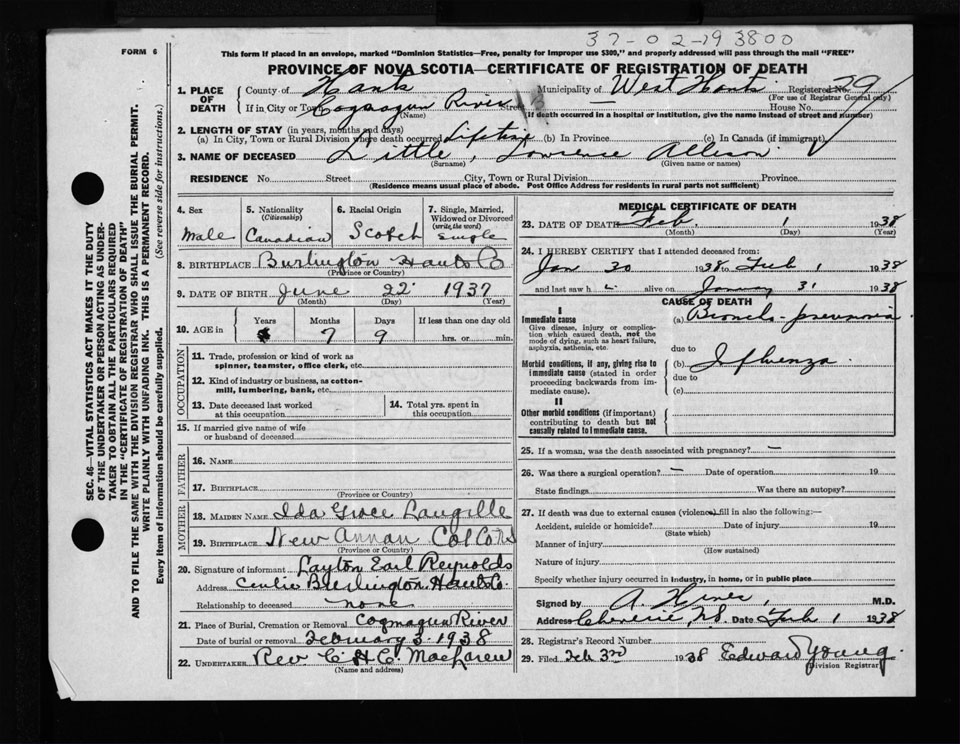 37-02-19 3800
FORM 6
This form if placed in an envelope, marked "Dominion Statistics—Free, penalty for improper use $300," and properly addressed will pass through the mail "FREE"
PROVINCE OF NOVA SCOTIA—CERTIFICATE OF REGISTRATION OF DEATH
1. PLACE OF DEATH County of Hants Municipality of West Hants Registered No. 79
(For use of Registrar General only)
If in City or Town Cogmagun River Street House No.
(Name) (If death occurred in a hospital or institution, give the name instead of street and number)
2. LENGTH OF STAY (in years, months and days)
(a) In City, Town or Rural Division where death occurred Lifetime (b) In Province (c) In Canada (if immigrant)
3. NAME OF DECEASED Little, Lawrence Allison
(Surname) (Given name or names)
RESIDENCE No. Street City, Town or Rural Division Province
(Residence means usual place of abode. Post Office Address for residents in rural parts not sufficient)
4. Sex 5. Nationality (Citizenship) 6. Racial Origin 7. Single, Married, Widowed or Divorced (write the word)
Male Canadian Scotch Single
8. BIRTHPLACE Burlington Hants Co
(Province or Country)
9. DATE OF BIRTH June 22 1937
(Month) (Day) (Year)
10. AGE in Years Months Days If less than one day old
7 9 hrs. or min.
OCCUPATION
11. Trade, profession or kind of work as spinner, teamster, office clerk, etc.
12. Kind of industry or business, as cotton-mill, lumbering, bank, etc.
13. Date deceased last worked at this occupation
14. Total yrs. spent in this occupation
15. If married give name of wife or husband of deceased
FATHER
16. NAME
17. BIRTHPLACE
(Province or Country)
MOTHER
18. MAIDEN NAME Ida Grace Langille
19. BIRTHPLACE New Annan Col Co NS
(Province or Country)
20. Signature of informant Layton Earl Reynolds
Address Centre Burlington Hants Co.
Relationship to deceased none
21. Place of Burial, Cremation or Removal Cogmagun River
Date of burial or removal February 3 1938
22. UNDERTAKER Rev C H C MacLaren
(Name and address)
MEDICAL CERTIFICATE OF DEATH
23. DATE OF DEATH Feb. 1 1938
(Month) (Day) (Year)
24. I HEREBY CERTIFY that I attended deceased from:
Jan 30 1938 to Feb 1 1938
and last saw h alive on January 31 1938
CAUSE OF DEATH
I
Immediate cause (a) Broncho-pneumonia
Give disease, injury or complication which caused death, not the mode of dying, such as heart failure, asphyxia, asthenia, etc.
due to
Morbid conditions, if any, giving rise to immediate cause (stated in order proceeding backwards from immediate cause).
(b) Influenza
due to
(c)
II
Other morbid conditions (if important) contributing to death but not causally related to immediate cause.
25. If a woman, was the death associated with pregnancy? —
26. Was there a surgical operation? — Date of operation 19
State findings Was there an autopsy?
27. If death was due to external causes (violence) fill in also the following:—
Accident, suicide or homicide? Date of injury 19
(State which)
Manner of injury
(How sustained)
Nature of injury
Specify whether injury occurred in industry, in home, or in public place
Signed by A. Hines, M.D.
Address Cheverie, N.S. Date Feb 1 1938
28. Registrar's Record Number
29. Filed Feb 3rd 1938 Edward Young
(Division Registrar)
SEC. 46—VITAL STATISTICS ACT MAKES IT THE DUTY
OF THE UNDERTAKER OR PERSON ACTING AS UNDER-
TAKER TO OBTAIN ALL THE PARTICULARS REQUIRED
IN THE "CERTIFICATE OF REGISTRATION OF DEATH"
AND TO FILE THE SAME WITH THE DIVISION REGISTRAR WHO SHALL ISSUE THE BURIAL PERMIT.
WRITE PLAINLY WITH UNFADING INK. THIS IS A PERMANENT RECORD.
Every item of information should be carefully supplied. (See reverse side for instructions.)